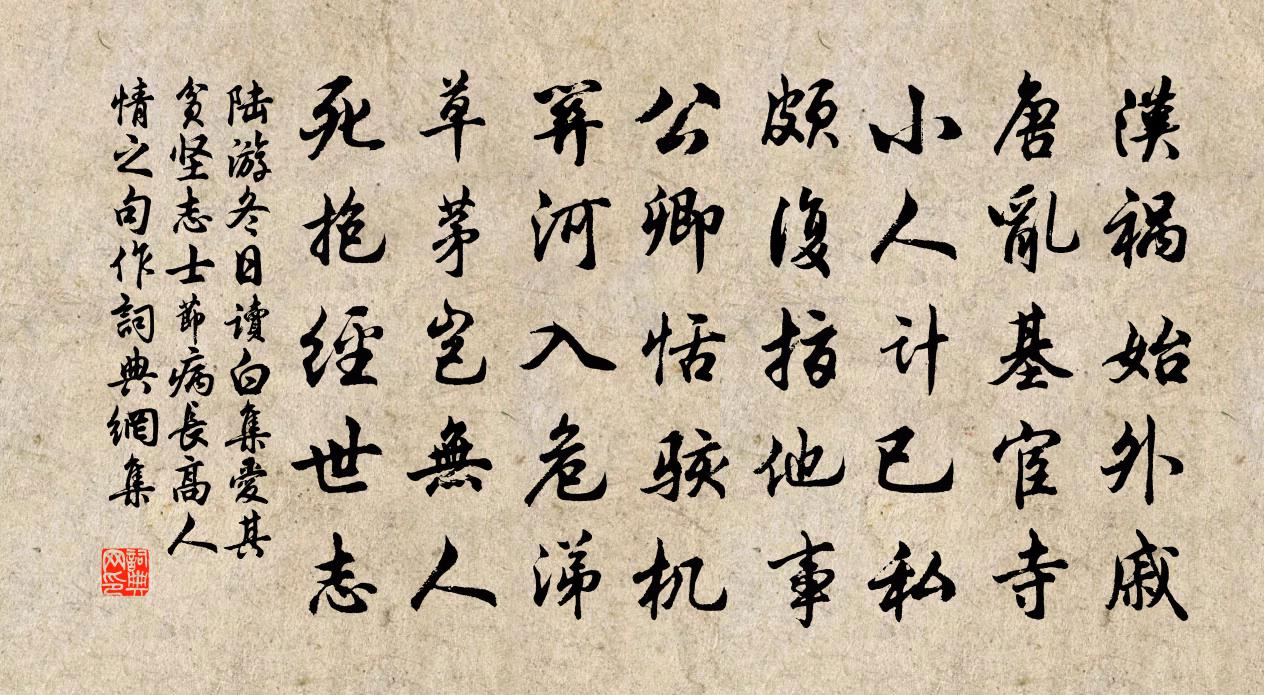 漢禍始外戚
唐亂基宦寺
小人計已私
頗復指他事
公卿恬駭机
關河入危涕
草茅豈無人
死抱經世志
陸游冬日讀白集愛其
貧坚志士節病長高人
情之句作詞典網集
詞典
网印